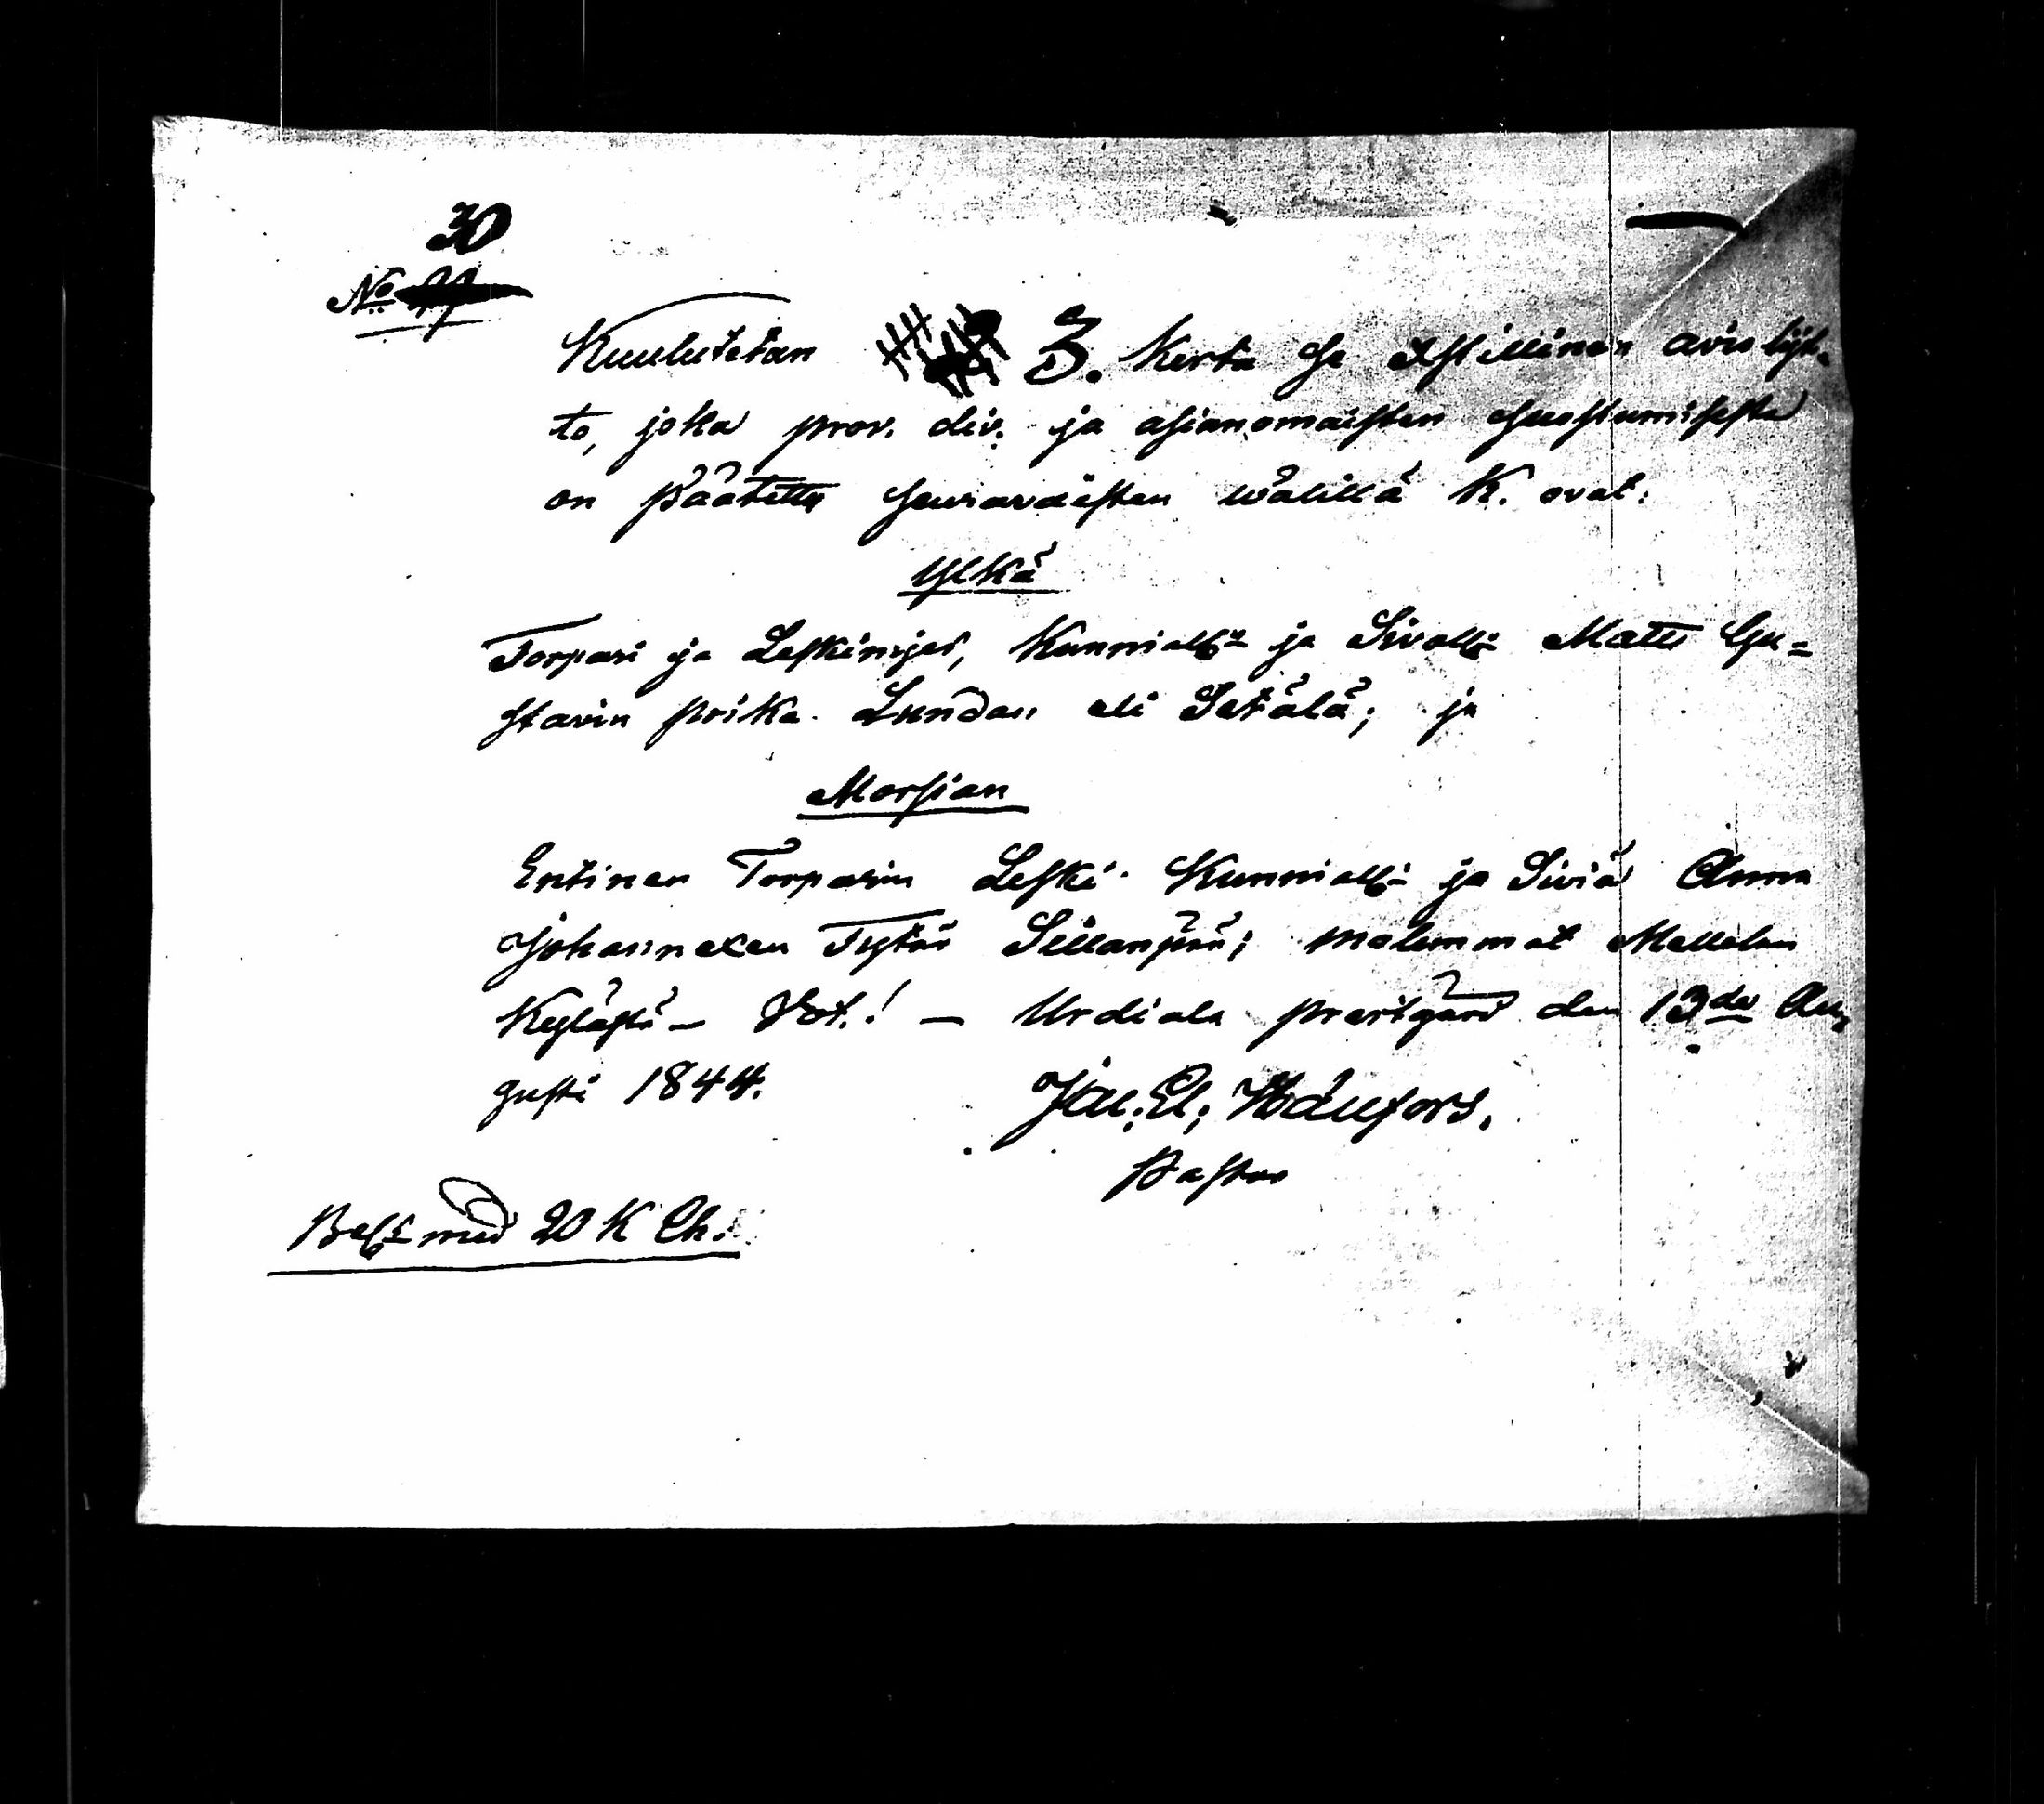 30
No
Kuulutetan 3. Kerta se Xstillinen avio lijt-
to, joka prov. div. ja asianomaisten suostumisesta
on päätetty seuravaisten wälillä K. ovat:
Ylkä
Torpari ja Leskimjes, Kunniall: ja Sivoll: Matts Gu=
stavin poika Lundan eli Setälä; ja
Morsian
Entinen Torparin Leski Kunniall: ja Siviä Anna
Johannexen Tytär Sillanpää; molemmat Mellolan
Kyläsä – Vot.! – Urdiala prestgård den 13de Au,
gusti 1844.
Jac. El.
Pastor
med 20 K Ch.